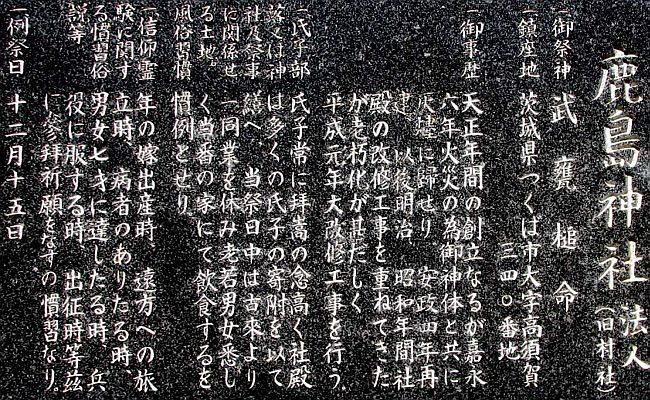 鹿島神社 法人(旧村社)
一御祭神 武甕槌命
一鎮座地 茨城県つくば市大字高須賀
三四〇番地
一御事歴 天正年間の創立なるが嘉永
六年火災の為御神体と共に
灰墟に歸せり 安政四年再
建 以後明治 昭和年間社
殿の改修工事を重ねてきた
が老朽化が甚だしく
平成元年大改修工事を行う
一氏子部
落又は神
社及祭事
に関係せ
る土地。
風俗習慣
氏子常に拝嵩の念高く社殿
は多くの氏子の寄附を以て
繕へ、当祭日中は古來より
一同業を休み老若男女悉し
く当番の家にて飲食するを
慣例とせり。
一信仰霊
験に関す
る慣習俗
説等
年の嫁出産時 遠方への旅
立時、病者のありたる時、
男女七才に達したる時 兵
役に服する時 出征時等玆
に参拜祈願をなすの慣習なり。
一例祭日 十二月十五日